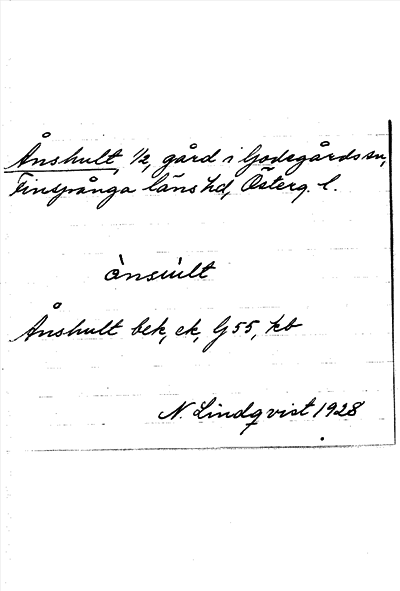 Ånshult, 1/2, gård i Godegårds sn,
Finspånga läns hd, Österg. l.
Ånshult bek, ek, G55, kb
N. Lindqvist 1928